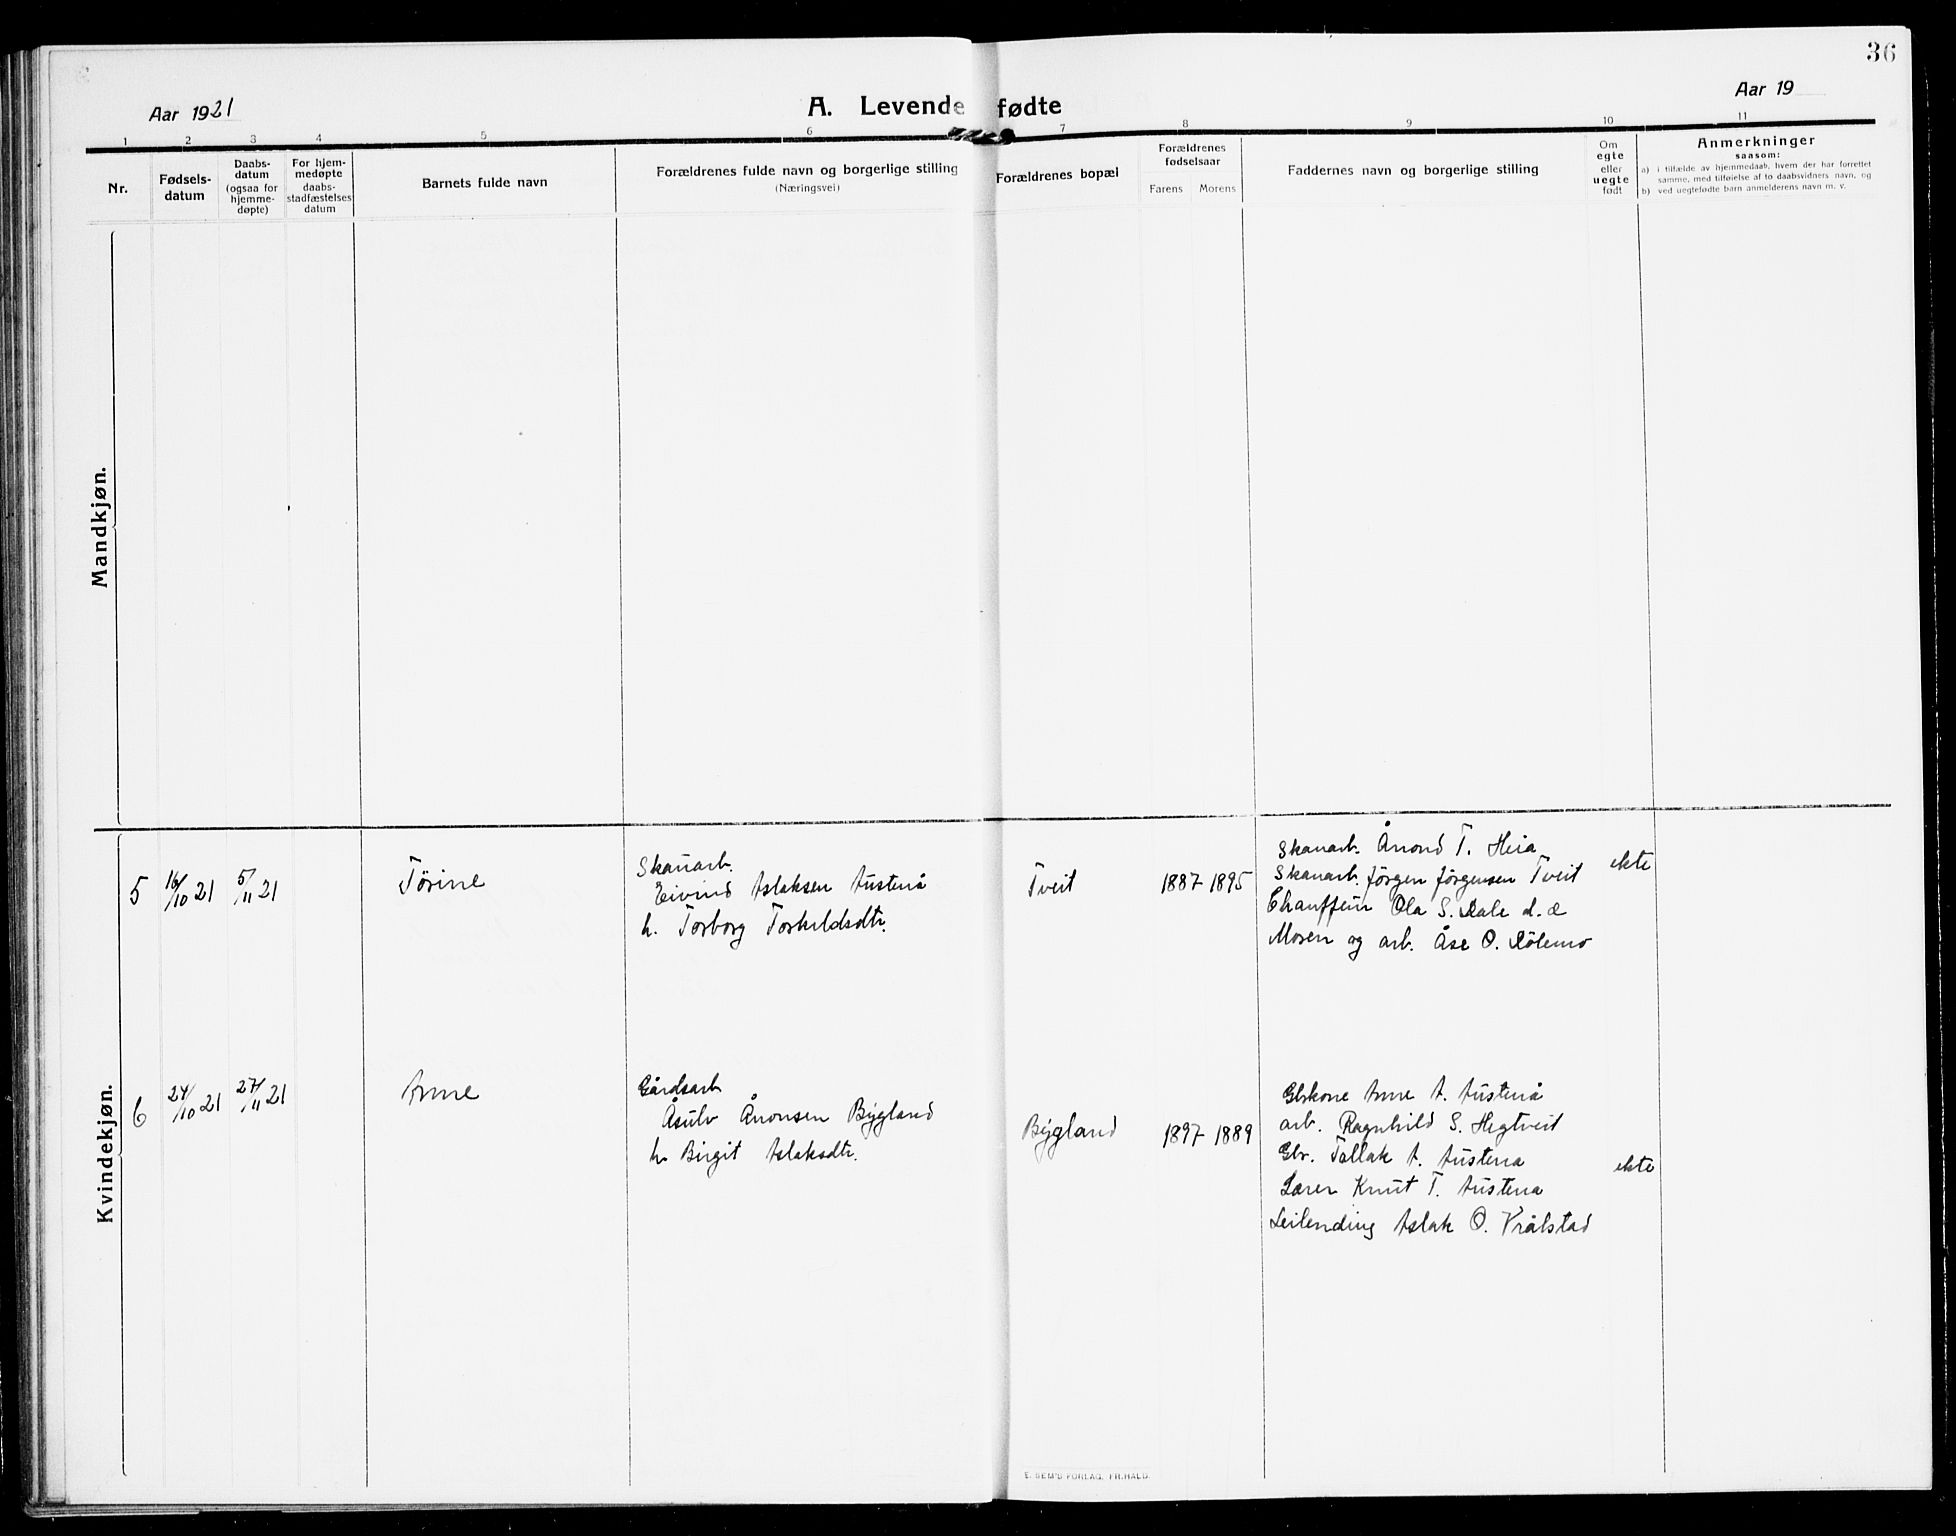 36
Aar 1921
A. Levendefødte
Aar 19
1 2 3 4 5 6 7 8 9 10 11
Nr.
Fødsels-
datum
Daabs-
datum
(ogsaa for
hjemme-
døpte)
For hjem-
medøpte
daabs-
stadfæstelses
datum
Barnets fulde navn
Forældrenes fulde navn og borgerlige stilling
(Næringsvei)
Forældrenes bopæl
Forældrenes
fødselsaar
Farens Morens
Faddernes navn og borgerlige stilling
Om
egte
eller
uegte
født
Anmerkninger
saasom:
a) i tilfælde av hjemmedaab, hvem der har forrettet
samme, med tilføielse af to daabsvidners navn, og
b) ved uegtefødte barn anmelderens navn m. v.
Mandkjøn.
Kvindekjøn.
5 16/10 21 5/11 21 Törine
Skauarb.
Eivind Aslaksen Austenå
h. Torborg Torkildsdtr.
Tveit 1887 1895
Skauarb. Ånond T. Heia
Skauarb. Jörgen Jörgensen Tveit
Chauffeur Ola S. Dale d. æ
Moren og arb. Åse O. Rölemo
ekte
6 24/10 21 27/11 21 Anne
Gårdsarb
Åsulv Ånonsen Bygland
h. Birgit Aslaksdtr.
Bygland 1897 1889
Gbrkone Anne A. Austenå
arb. Ragnhild S. Hegtveit
Gbr. Tallak A. Austenå
Lærer Knut T. Austenå
Leilending Aslak O. Vrålstad
ekte
E. SEM'S FORLAG, FR.HALD.